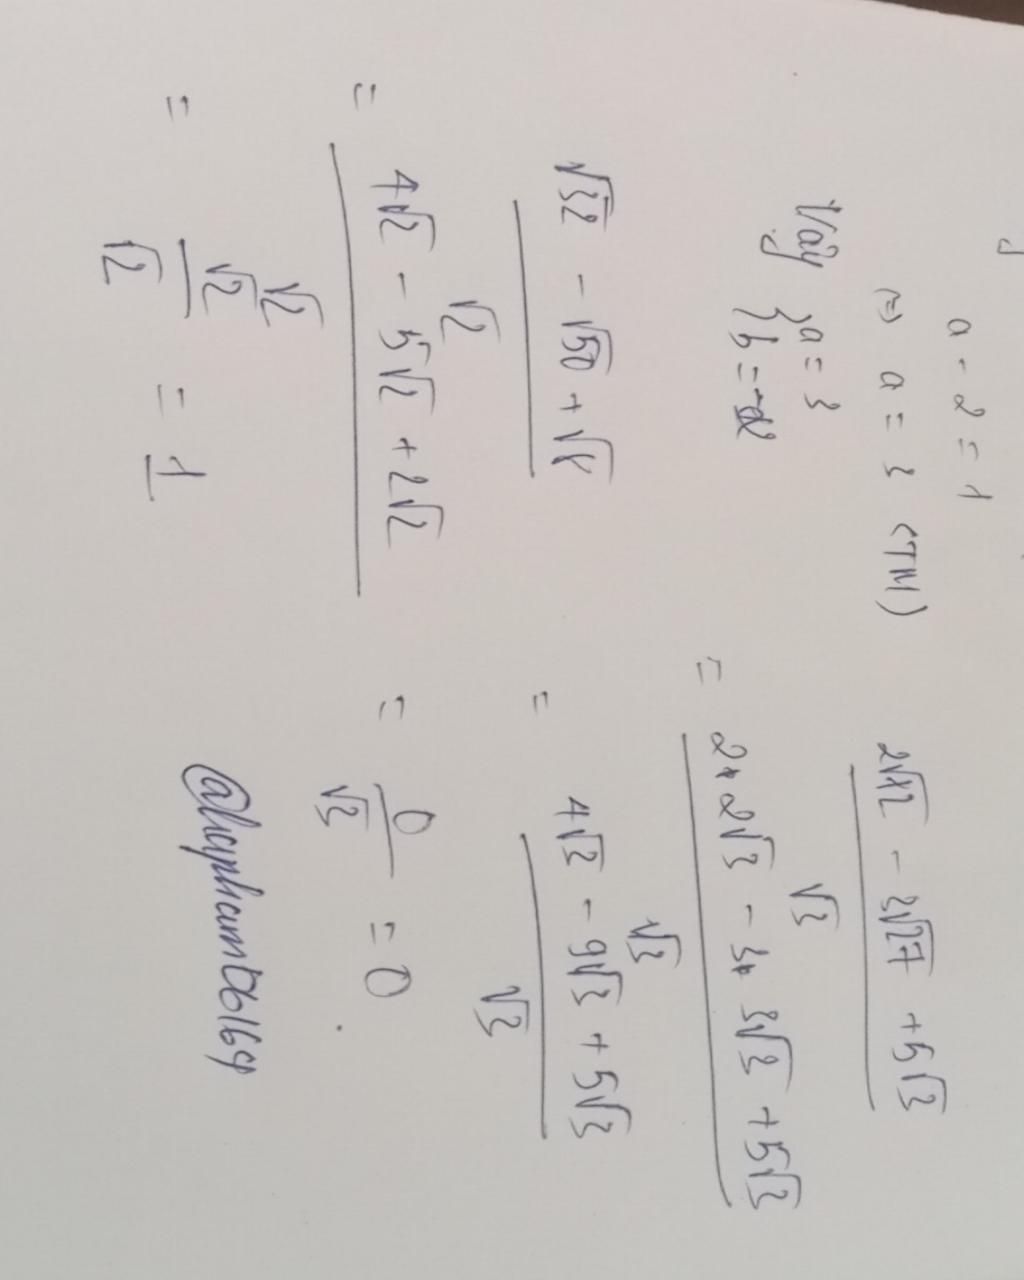 a - 2 = 1
(=) a = 3 (TM)
Vậy { a = 3
{ b = -2
√32 - √50 + √8
√2
= 4√2 - 5√2 + 2√2
√2
= √2
√2 = 1
2√12 - 3√27 + 5√3
√3
= 2 * 2√3 - 3 * 3√3 + 5√3
√3
= 4√3 - 9√3 + 5√3
√3
= 0
√3 = 0